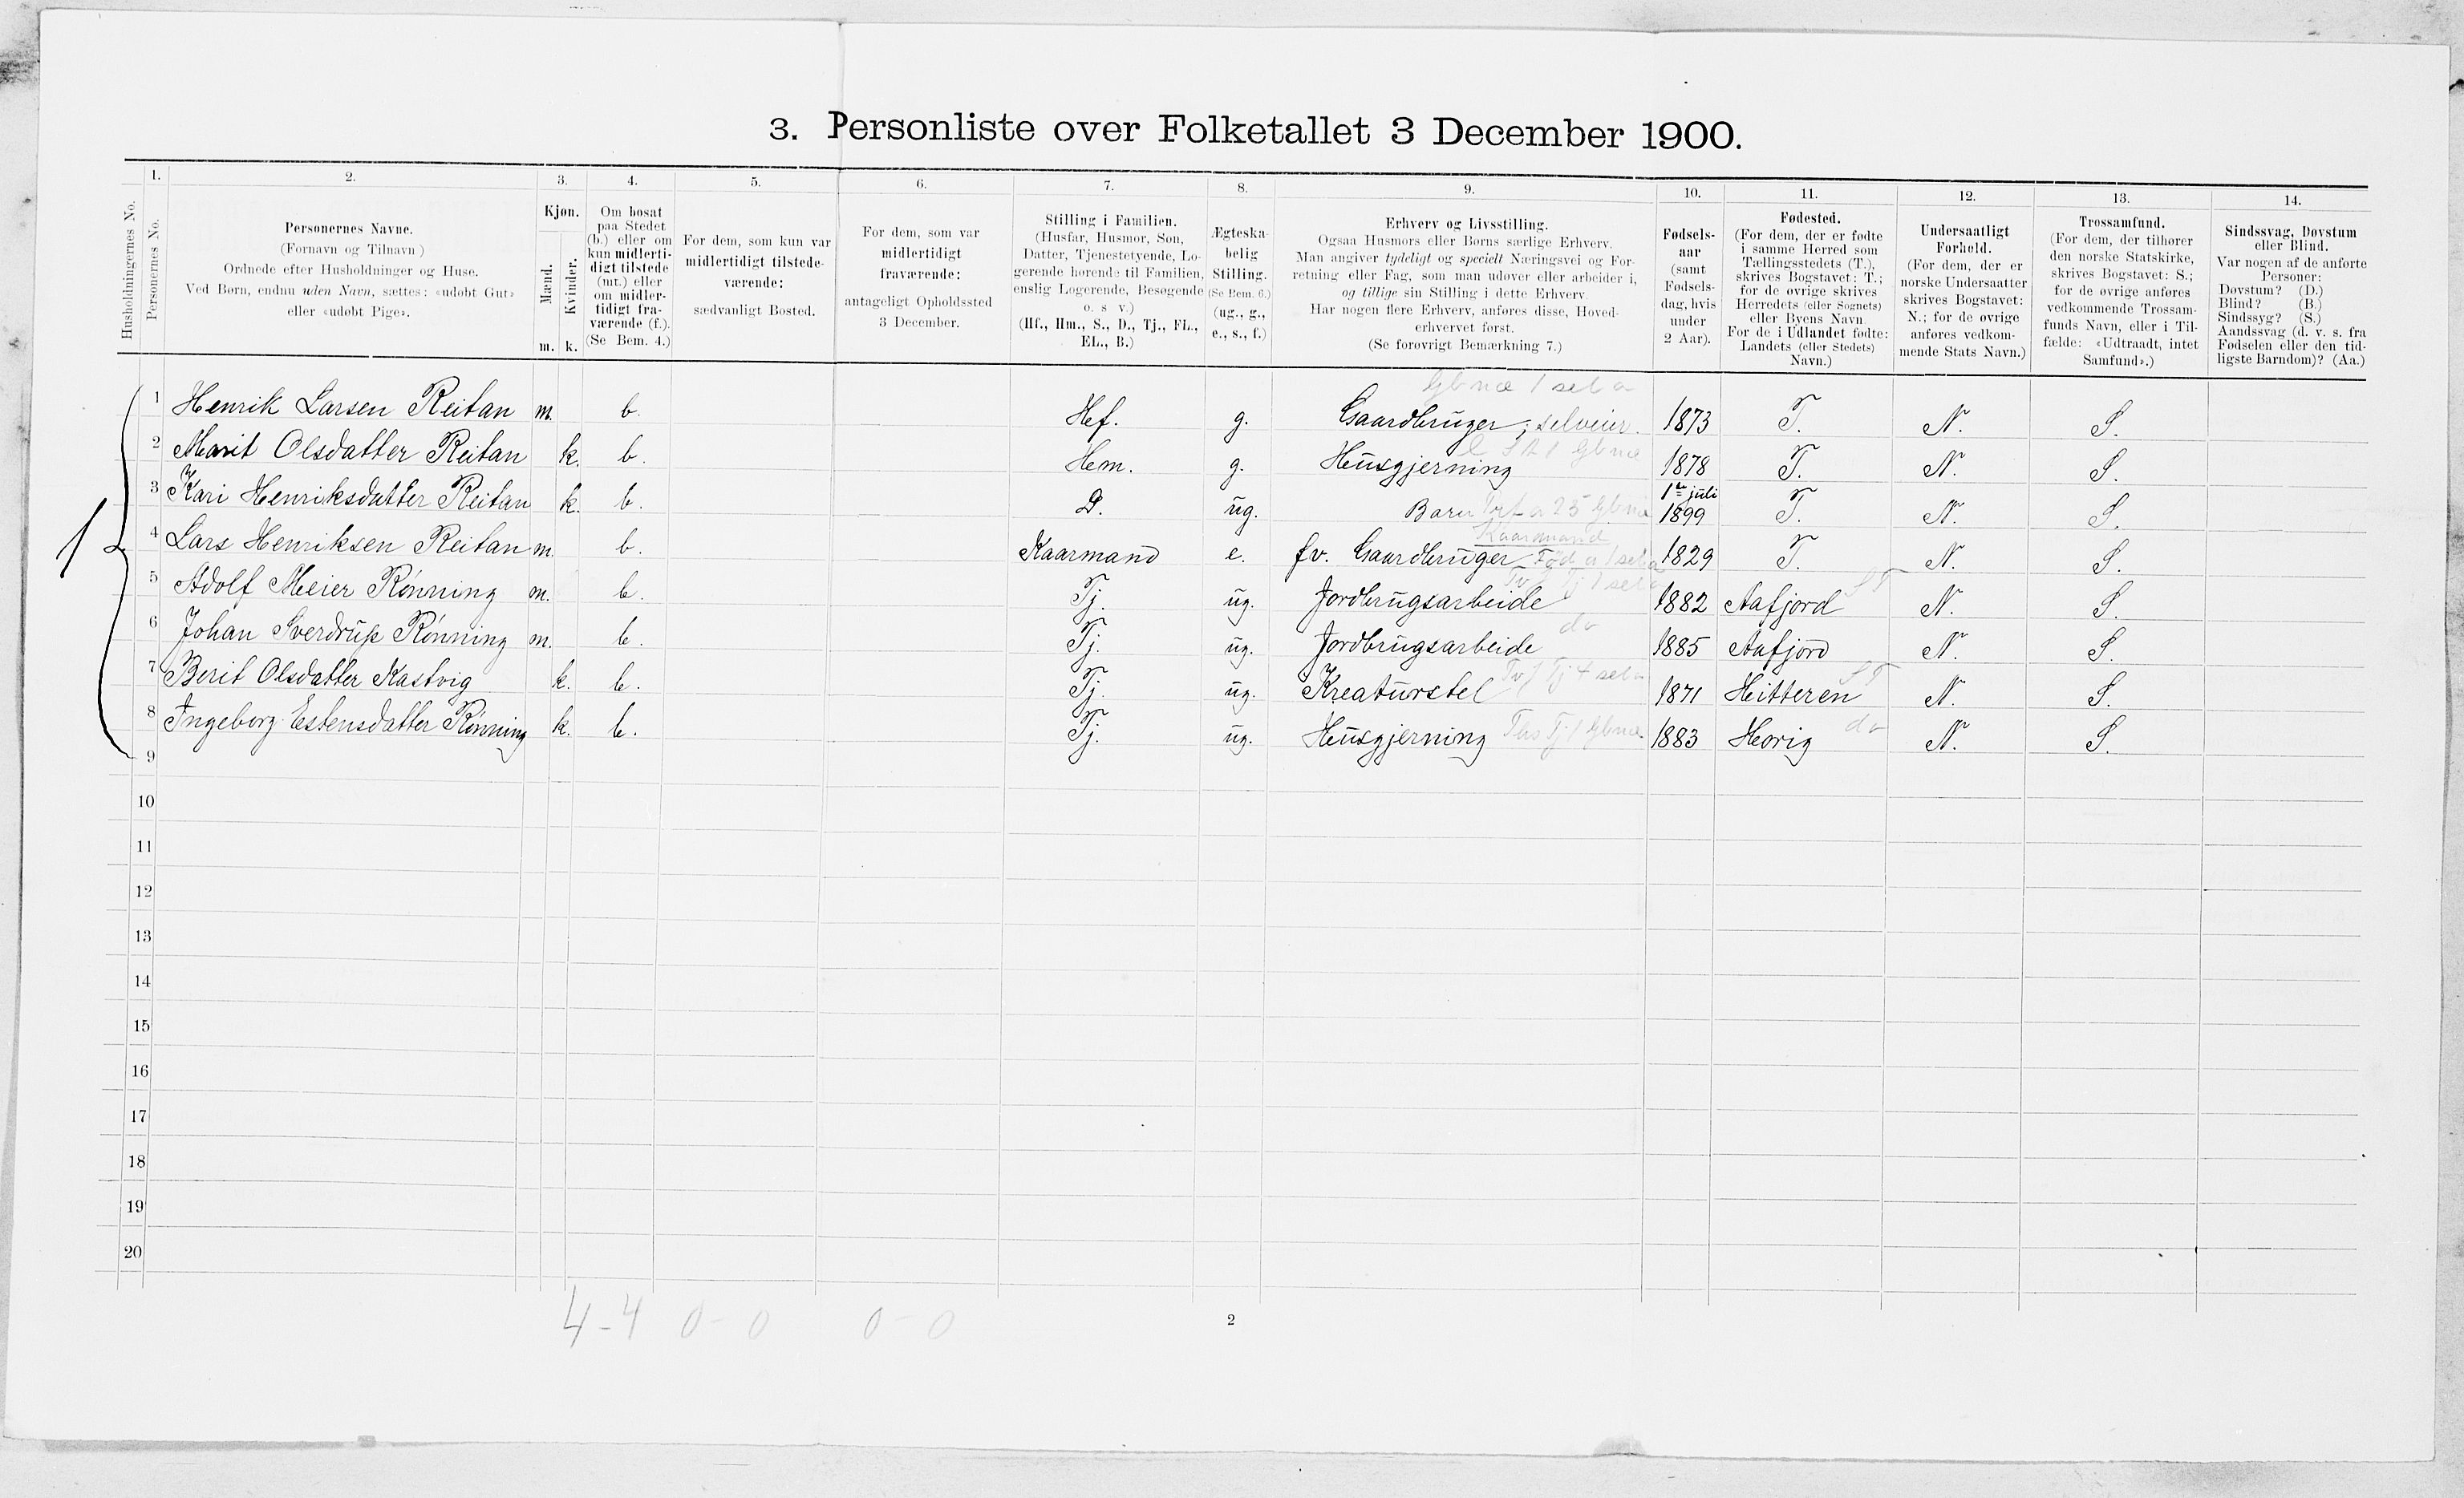 3. Personliste over Folketallet 3 December 1900.
1. 2. 3. 4. 5. 6. 7. 8. 9. 10. 11. 12. 13. 14.
Husholdningernes No.
Personernes No.
Personernes Navne.
(Fornavn og Tilnavn)
Ordnede efter Husholdninger og Huse.
Ved Børn, endnu uden Navn, sættes: «udøbt Gut»
eller «udøbt Pige».
Kjøn.
Mænd.
Kvinder.
m. k.
Om bosat
paa Stedet
(b.) eller om
kun midlerti-
digt tilstede
(mt.) eller
om midler-
tidigt fra-
værende (f.).
(Se Bem. 4.)
For dem, som kun var
midlertidigt tilstede-
værende:
sædvanligt Bosted.
For dem, som var
midlertidigt
fraværende:
antageligt Opholdssted
3 December.
Stilling i Familien.
(Husfar, Husmor, Søn,
Datter, Tjenestetyende, Lo-
gerende hørende til Familien,
enslig Logerende, Besøgende
o. s v.)
(Hf., Hm., S., D., Tj., FL.,
EL., B.)
Ægteska-
belig
Stilling.
(Se Bem. 6.)
(ug., g.,
e., s., f.)
Erhverv og Livsstilling.
Ogsaa Husmors eller Børns særlige Erhverv.
Man angiver tydeligt og specielt Næringsvei og For-
retning eller Fag, som man udøver eller arbeider i,
og tillige sin Stilling i dette Erhverv.
Har nogen flere Erhverv, anføres disse, Hoved-
erhvervet først.
(Se forøvrigt Bemærkning 7.)
Fødsels-
aar
(samt
Fødsels-
dag, hvis
under
2 Aar).
Fødested.
(For dem, der er fødte
i samme Herred som
Tællingsstedets (T.),
skrives Bogstavet: T.;
for de øvrige skrives
Herredets (eller Sognets)
eller Byens Navn.
For de i Udlandet fødte:
Landets (eller Stedets)
Navn.)
Undersaatligt
Forhold.
(For dem, der er
norske Undersaatter
skrives Bogstavet:
N.; for de øvrige
anføres vedkom-
mende Stats Navn.)
Trossamfund.
(For dem, der tilhører
den norske Statskirke,
skrives Bogstavet: S.;
for de øvrige anføres
vedkommende Trossam-
funds Navn, eller i Til-
fælde: «Udtraadt, intet
Samfund».)
Sindssvag, Døvstum
eller Blind.
Var nogen af de anførte
Personer:
Døvstum? (D.)
Blind? (B.)
Sindssyg? (S.)
Aandssvag (d. v. s. fra
Fødselen eller den tid-
ligste Barndom)? (Aa.)
1
1 Henrik Larsen Reitan m. b. Hef. g. Gaardbruger, selveier. 1873 T. N. S.
2 Marit Olsdatter Reitan k. b. Hem. g. Husgjerning 1878 T. N. S.
3 Kari Henriksdatter Reitan k. b. D. ug. Barn 1ste juli 1899 T. N. S.
Kaarmand
4 Lars Henriksen Reitan m. b. Kaarmand e. fv. Gaardbruger 1829 T. N. S.
5 Adolf Meier Rønning m. b. Tj. ug. Jordbrugsarbeide 1882 Aafjord ST N. S.
6 Johan Sverdrup Rønning m. b. Tj. ug. Jordbrugsarbeide do 1885 Aafjord N. S.
7 Berit Olsdatter Kastvig k. b. Tj. ug. Kreaturstel 1871 Hitteren ST N. S.
8 Ingeborg Estensdatter Rønning k. b. Tj. ug. Husgjerning 1883 Horig do N. S.
9
10
11
12
13
14
15
16
17
18
19
20
4-4 0-0 0-0
2